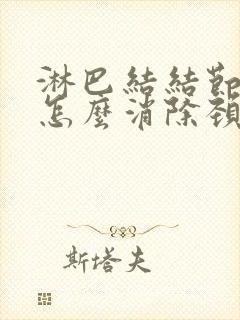 淋巴結結節
怎麼消除頸
斯塔夫